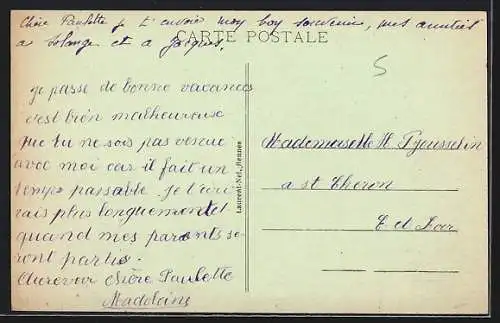 Chère Paulette je t'envoie mon bon souvenir, mes amitiés
a Solange et a Jacques.
CARTE POSTALE
5
je passe de bonne vacances
c'est bien malheureuse
que tu ne sois pas venue
avec moi car il fait un
temps passable. Je t'écri
rais plus longuement
quand mes parents se-
ront partis.
Aurevoir chère Paulette
Madeleine
Laurent-Nel, Rennes
Mademoiselle
a st
E et Loir